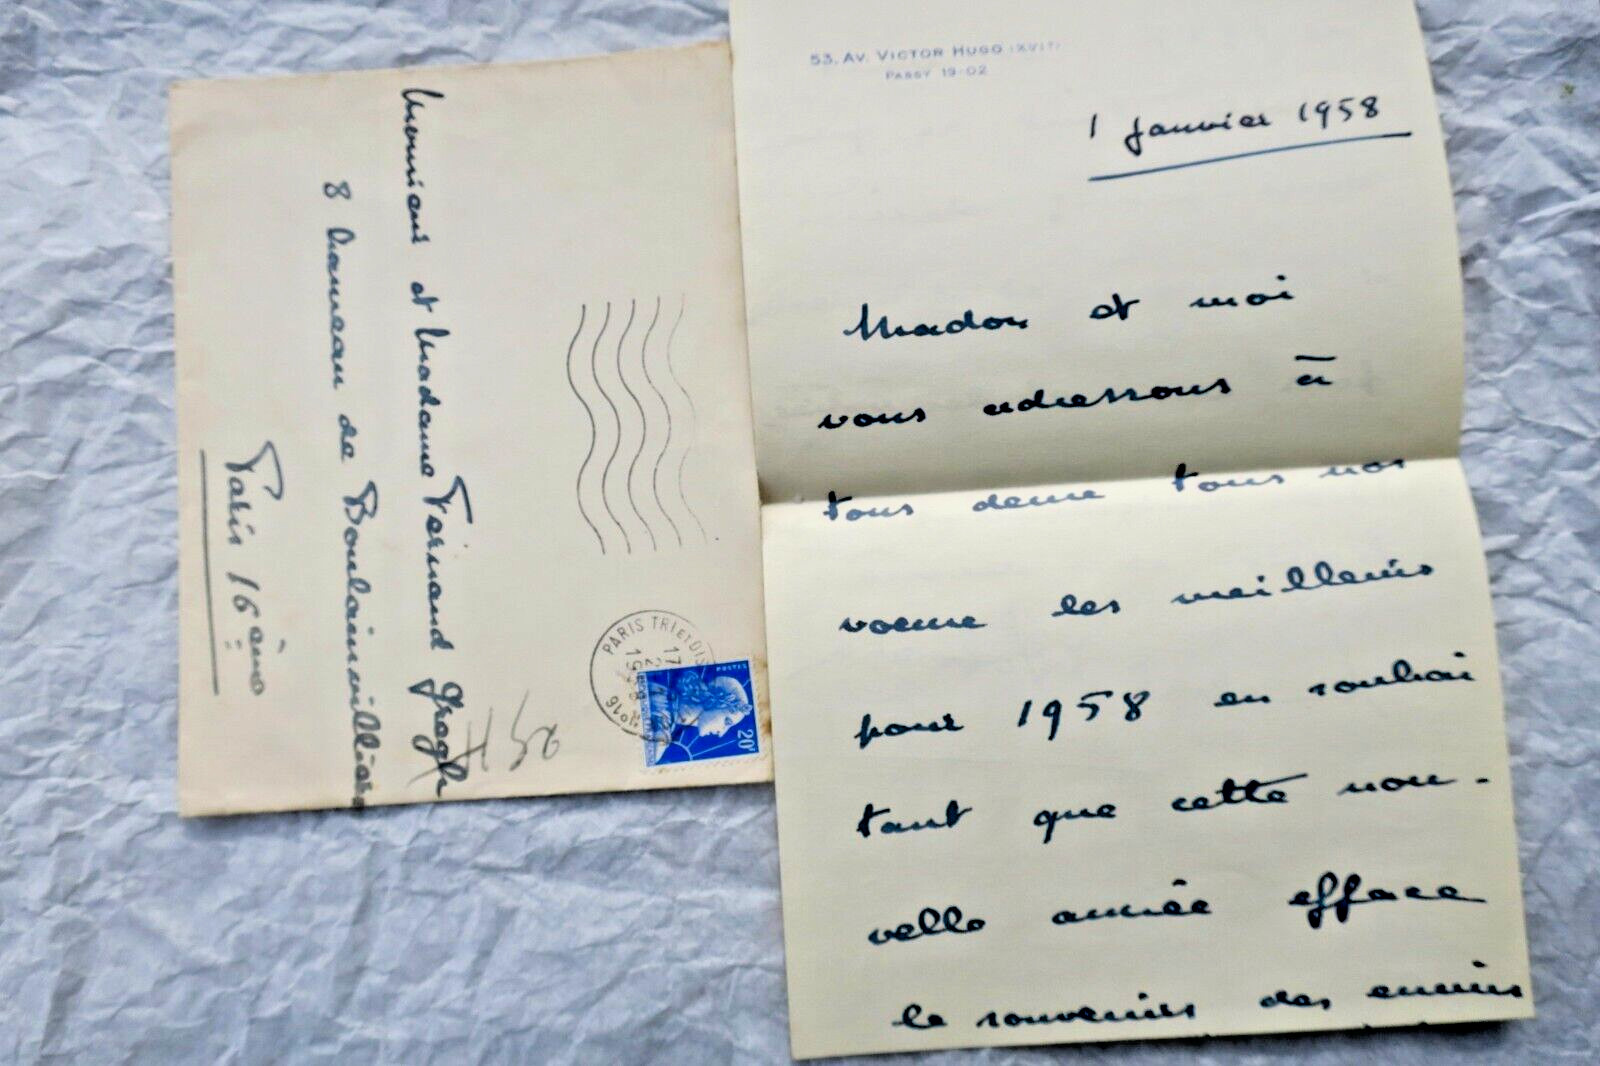 Monsieur et Madame Fernand Gregh
8 hameau de Boulainvilliers
Paris 16 ème
PARIS TRI et DIS
17
2
19
N° 16
POSTES
20F
53, AV. VICTOR HUGO (XVIE)
PASSY 19-02
1 Janvier 1958
Madou et moi
vous adressons à
tous deux tous nos
voeux les meilleurs
pour 1958 en souhai
tant que cette nou-
velle année efface
le souvenir des ennuis